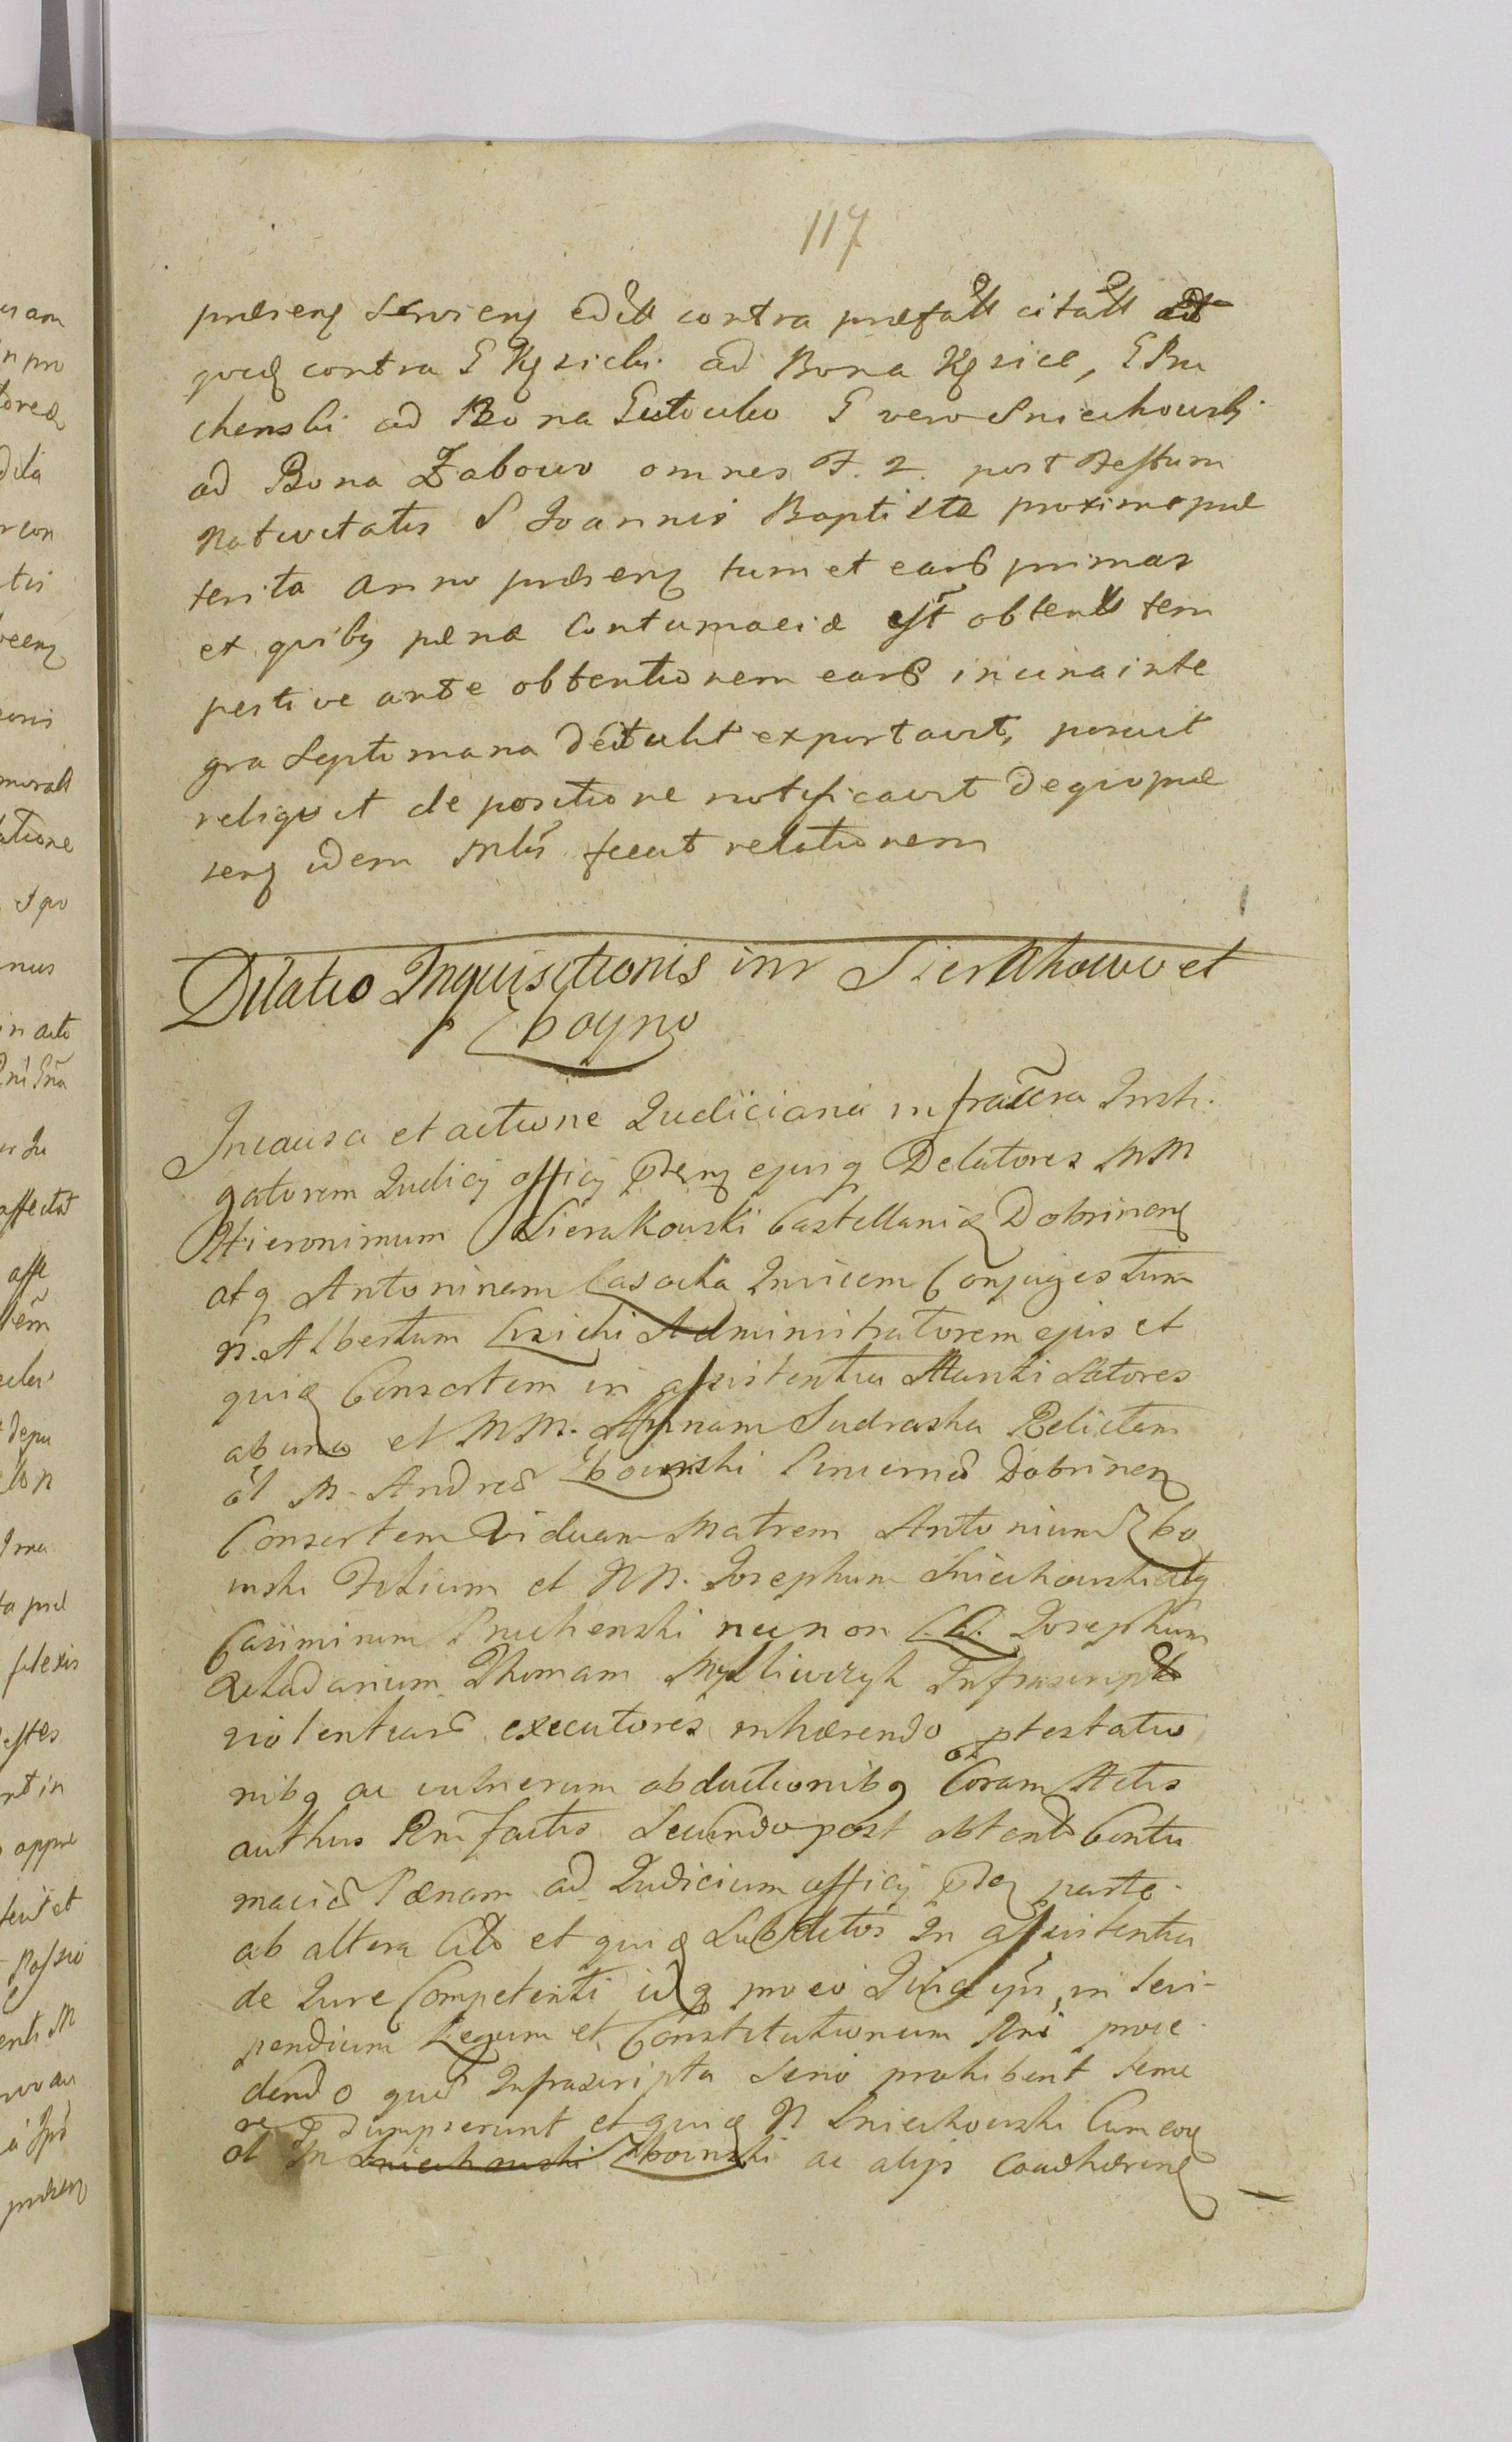 117
præsenſ servienſ editt contra præfatt citatt
quidſ contra G Kſsicki ad Bona Kſsice, G Pru
chenski ad Bona Gutowko G vero Sniechowski
ad Bona Żabowo omnes F. 2. post Festum
Nativitatis S Joannis Baptistæ proxime præ
terita anno præsenſ tum et earũ primas
ex quibꝫ pæna Contumaciæ est obtenta tem
pestive ante obtentionem earũ in una inte
gra Septimana detulit exportavit, posuit
reliquit de positione notificavit de quo præ
senſ idem Mlis fecit relationem
Dilatio Inquisitionis inr Sierakhowo et
Zboyno
In causa et actione Judiciaria infrascra Insti-
gatorem Judicij officij pntnſ ejusqꝫ Delatores MM
Hieronimum Sierakowski Castellaniæ Dobrinenſ
atqꝫ Antoninam Invicem Conjuges tum
N. Albertum Administratorem ejus et
quiæ Consortem in assistentia Mariti Actores
ab una et MM. Annam Sudraska Relictam
ol M. Andreæ Zboinski Pincernæ Dobrinenſ
Consortem Viduam Matrem Antonium Zbo
inski Filium et NN. Josephum Sniechowski atqꝫ
Casimirum Pruchenski nec non LL. Josephum
Thomam Infrascriptt
violentiarũ executores inhærendo ptestatio
nibꝫ ac vulnerum obductionibꝫ Coram Actis
authūs Rni factis Secundo post obtent Contu
maciæ Pænam ad Judicium officij parte
ab altera Citt et quiæ Subditos In assistentia
de Jure Competenti idqꝫ pro eo Quia ipsi, in levi-
pendium Legum et Constitutionum Rni proce-
dendo quæ Infrascripta serio prohibent teme
re præsumpserunt et quiæ N Sniechowski Cum eoꝫ
ol M Sniechowski Zboinski ac alijs coadhærenſ